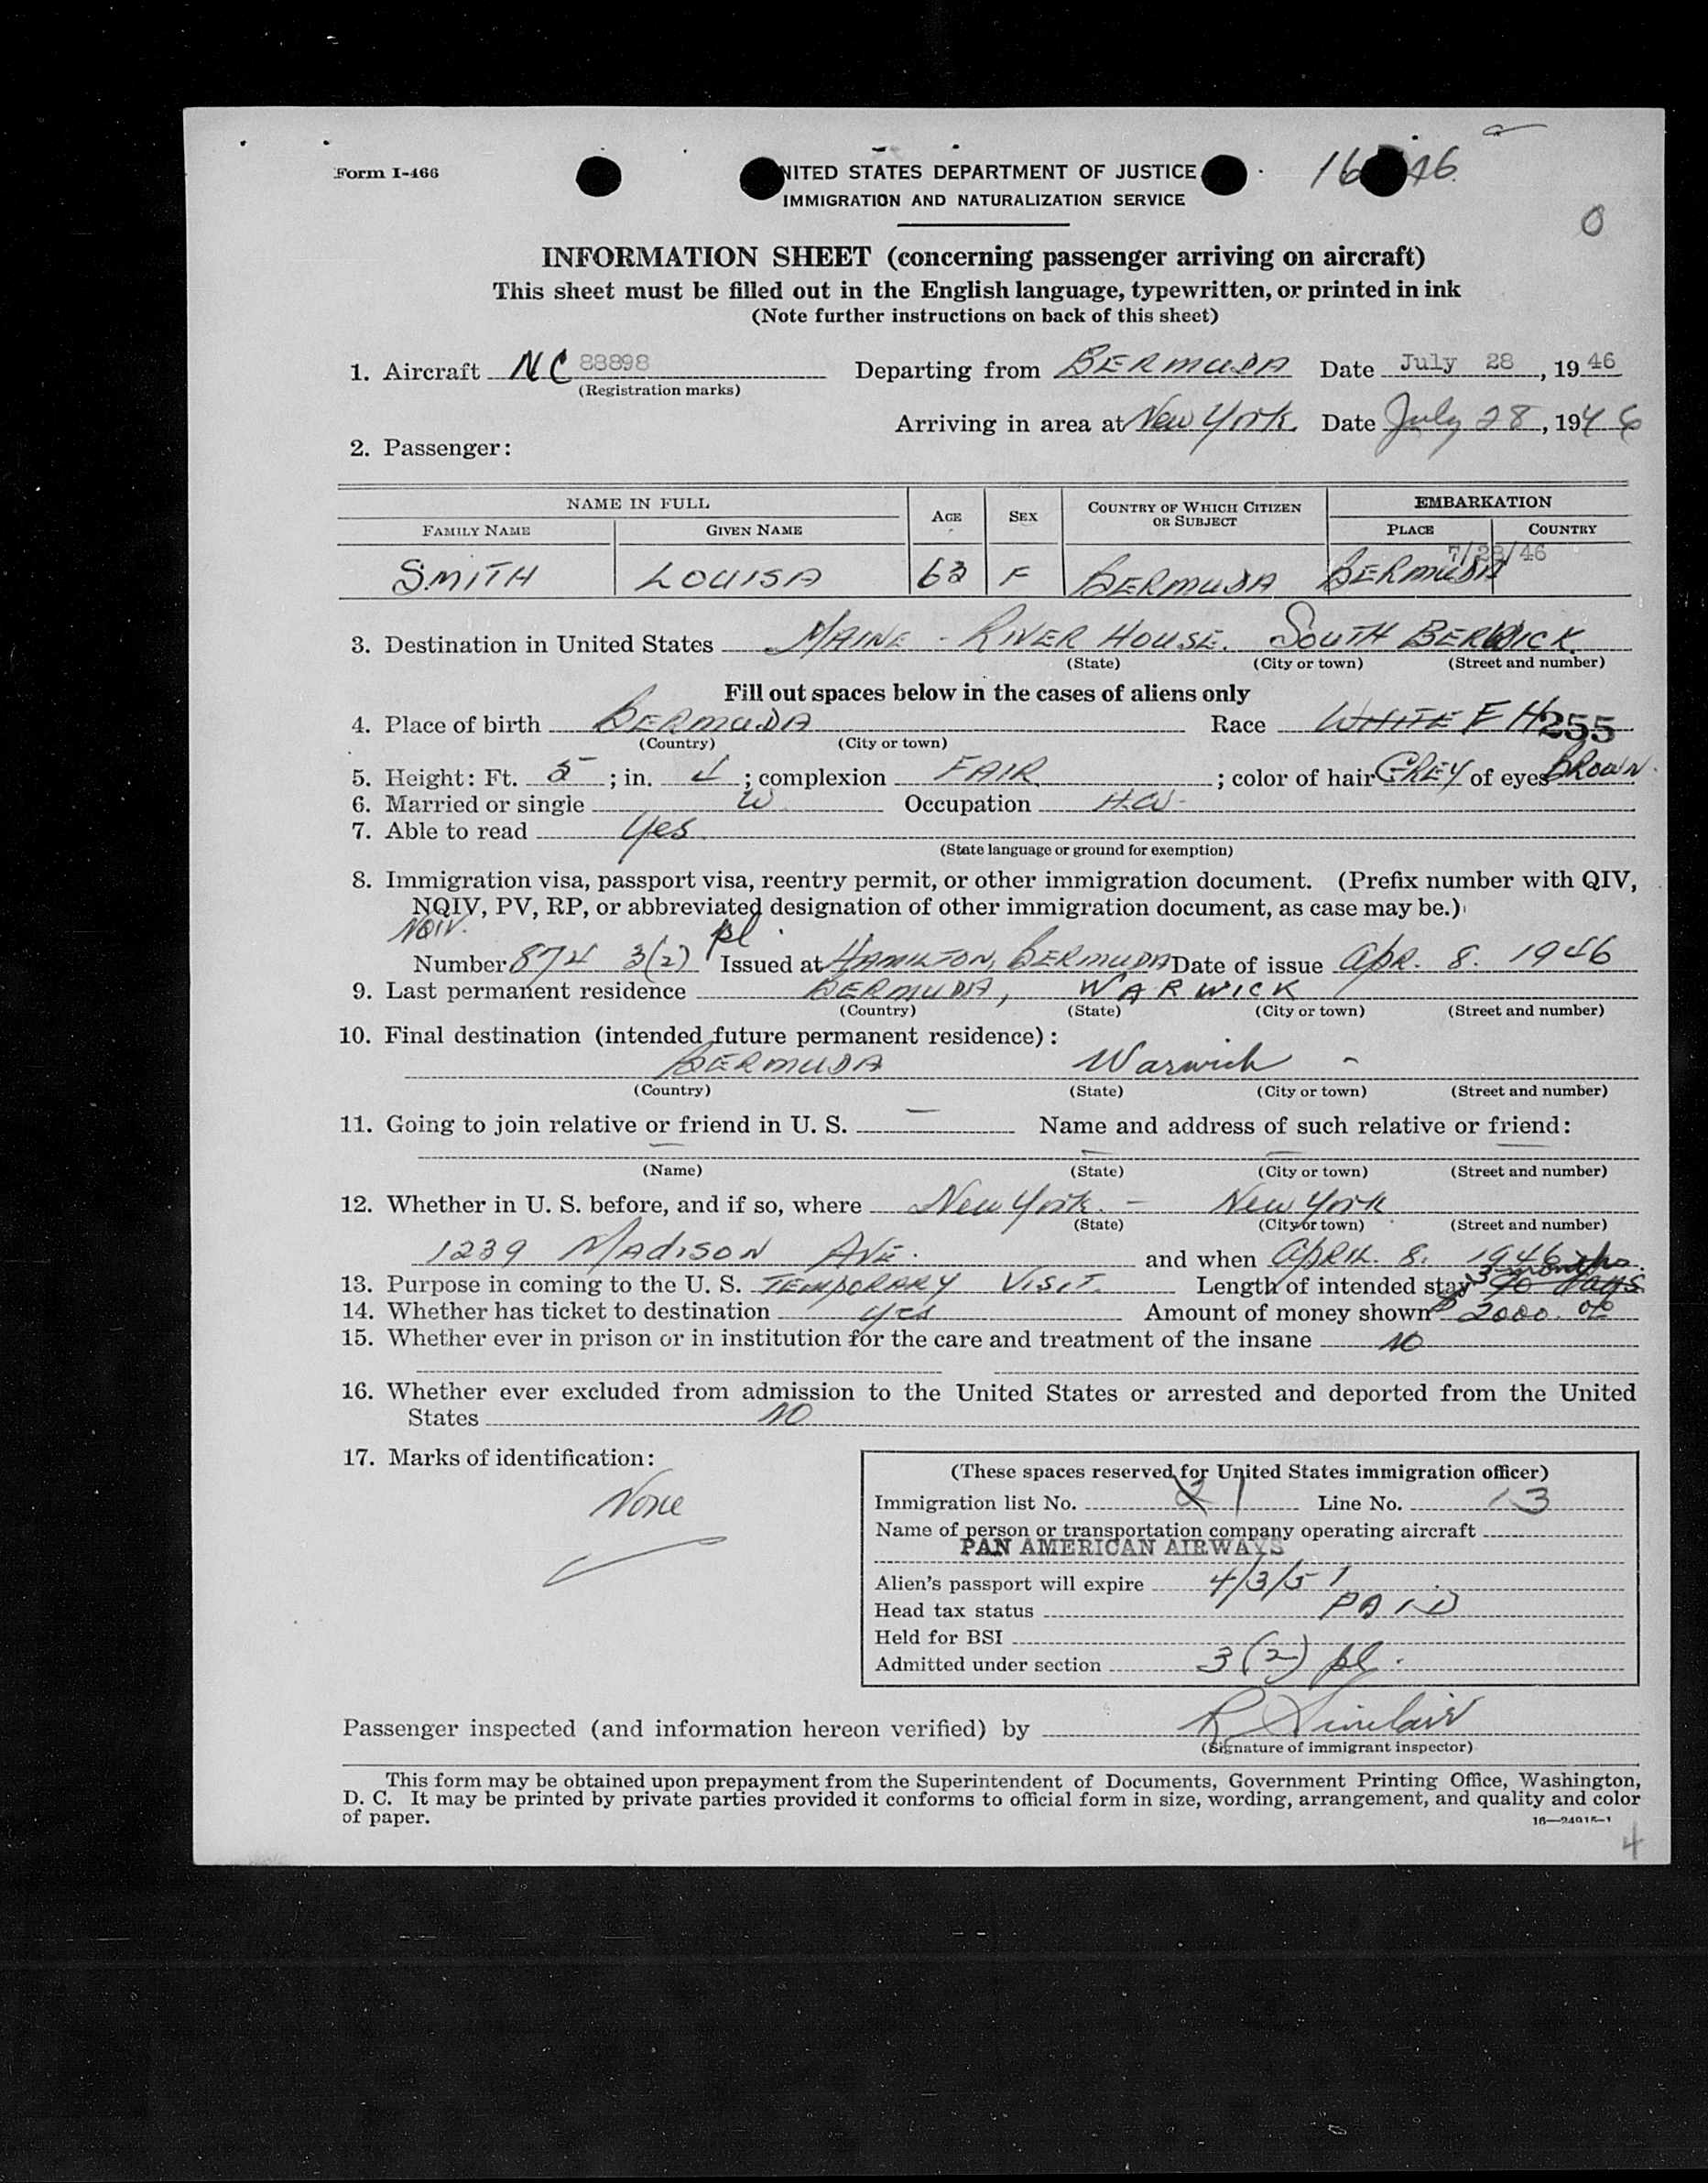 Form I-466
NITED STATES DEPARTMENT OF JUSTICE
IMMIGRATION AND NATURALIZATION SERVICE
0
INFORMATION SHEET (concerning passenger arriving on aircraft)
This sheet must be filled out in the English language, typewritten, or printed in ink
(Note further instructions on back of this sheet)
1. Aircraft NC 88898 Departing from BERMUDA Date July 28, 1946
(Registration marks)
Arriving in area at New York. Date July 28, 1946
2. Passenger:
NAME IN FULL AGE SEX COUNTRY OF WHICH CITIZEN OR SUBJECT EMBARKATION
FAMILY NAME GIVEN NAME PLACE COUNTRY
7/28/46
SMITH LOUISA 63 F BERMUDA BERMUDA
3. Destination in United States MAINE - RIVER HOUSE. SOUTH BERWICK.
(State) (City or town) (Street and number)
Fill out spaces below in the cases of aliens only
4. Place of birth BERMUDA Race WHITE EH 255
(Country) (City or town)
5. Height: Ft. 5; in. 4; complexion FAIR; color of hair GREY of eyes BROWN.
6. Married or single W Occupation H.W.
7. Able to read Yes
(State language or ground for exemption)
8. Immigration visa, passport visa, reentry permit, or other immigration document. (Prefix number with QIV,
NQIV, PV, RP, or abbreviated designation of other immigration document, as case may be.)
NQIV. pl.
Number 874 3(2) Issued at HAMILTON, BERMUDA Date of issue Apr. 8. 1946
9. Last permanent residence BERMUDA, WARWICK
(Country) (State) (City or town) (Street and number)
10. Final destination (intended future permanent residence):
BERMUDA Warwick -
(Country) (State) (City or town) (Street and number)
11. Going to join relative or friend in U. S. — Name and address of such relative or friend:
— — —
(Name) (State) (City or town) (Street and number)
12. Whether in U. S. before, and if so, where New York. - New York
(State) (City or town) (Street and number)
1239 MADISON AVE. and when APRIL. 8. 1946
13. Purpose in coming to the U. S. TEMPORARY VISIT. Length of intended stay 3 months 90 days
14. Whether has ticket to destination yes Amount of money shown $2000.00
15. Whether ever in prison or in institution for the care and treatment of the insane NO
16. Whether ever excluded from admission to the United States or arrested and deported from the United
States NO
17. Marks of identification:
None
(These spaces reserved for United States immigration officer)
Immigration list No. 21 Line No. 13
Name of person or transportation company operating aircraft
PAN AMERICAN AIRWAYS
Alien's passport will expire 4/3/51
Head tax status PAID
Held for BSI
Admitted under section 3(2) pl.
Passenger inspected (and information hereon verified) by R Sinclair
(Signature of immigrant inspector)
This form may be obtained upon prepayment from the Superintendent of Documents, Government Printing Office, Washington,
D. C. It may be printed by private parties provided it conforms to official form in size, wording, arrangement, and quality and color
of paper.
16—24915-1
4